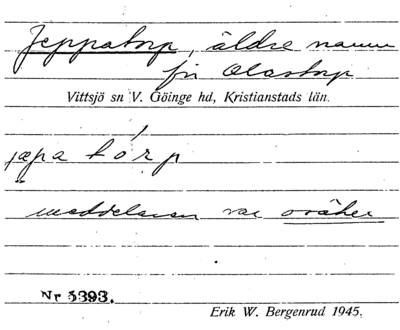 Jeppatorp, äldre namn
för Olastorp
Vittsjö sn V. Göinge hd, Kristianstads län.
jæpa tórp
meddelaren var osäker
Nr 5393.
Erik W. Bergenrud 1945.